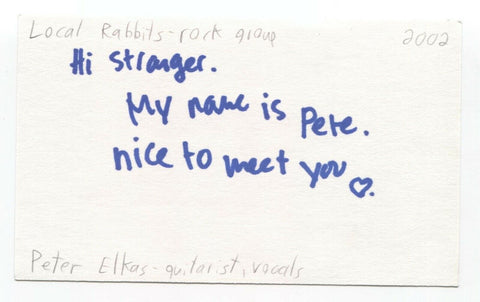 Local Rabbits - rock group 2002
Hi stranger.
My name is Pete.
nice to meet you ♡.
Peter Elkas - guitarist, vocals